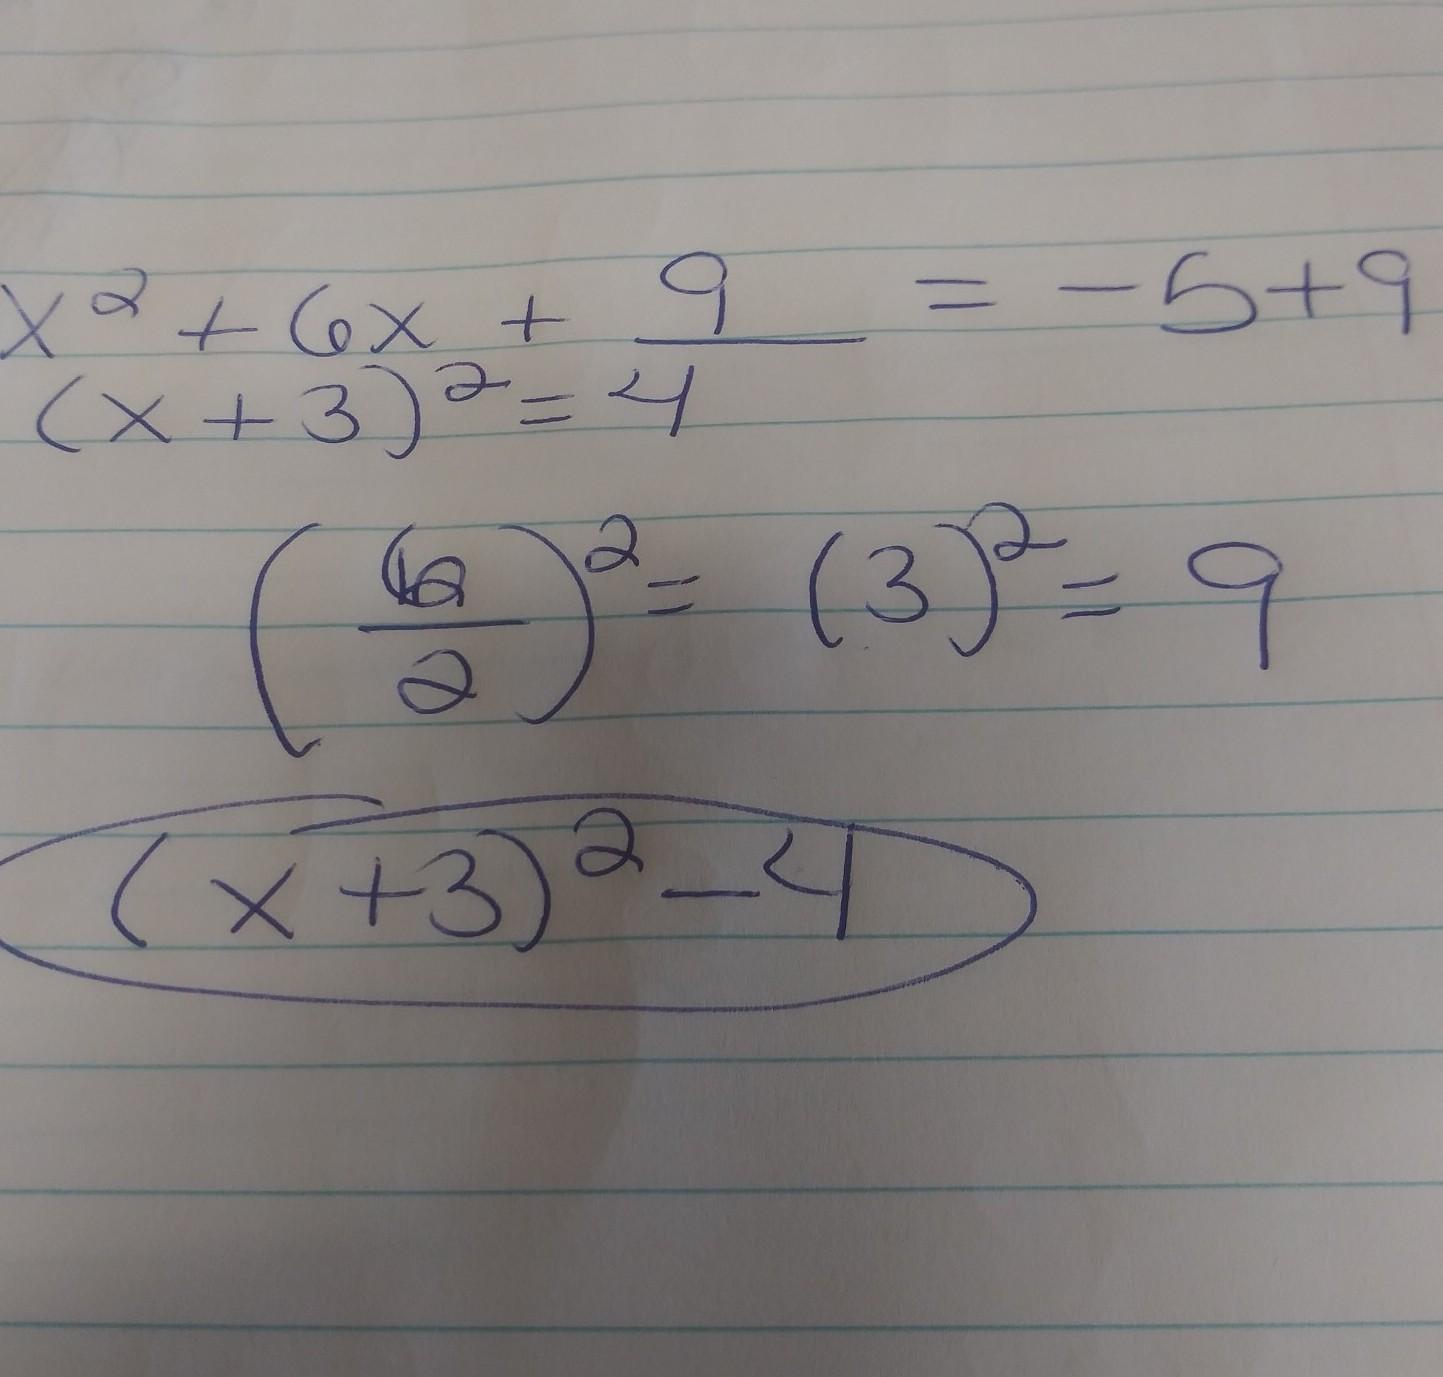 x² + 6x + 9 = -5+9
(x+3)² = 4
(6/2)² = (3)² = 9
(x+3)² - 4